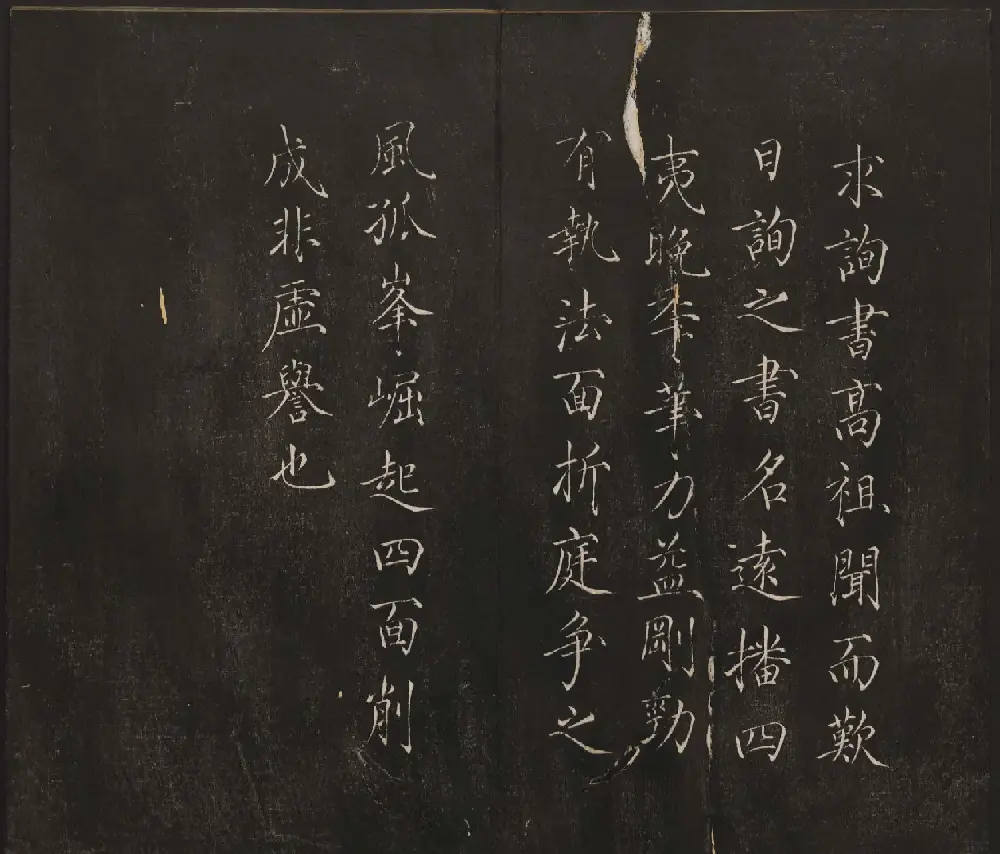 求詢書高祖聞而歎
曰詢之書名遠播四
夷晚季筆力益剛勁
有執法面折庭争之
風孤峯崛起四面削
成非虛譽也